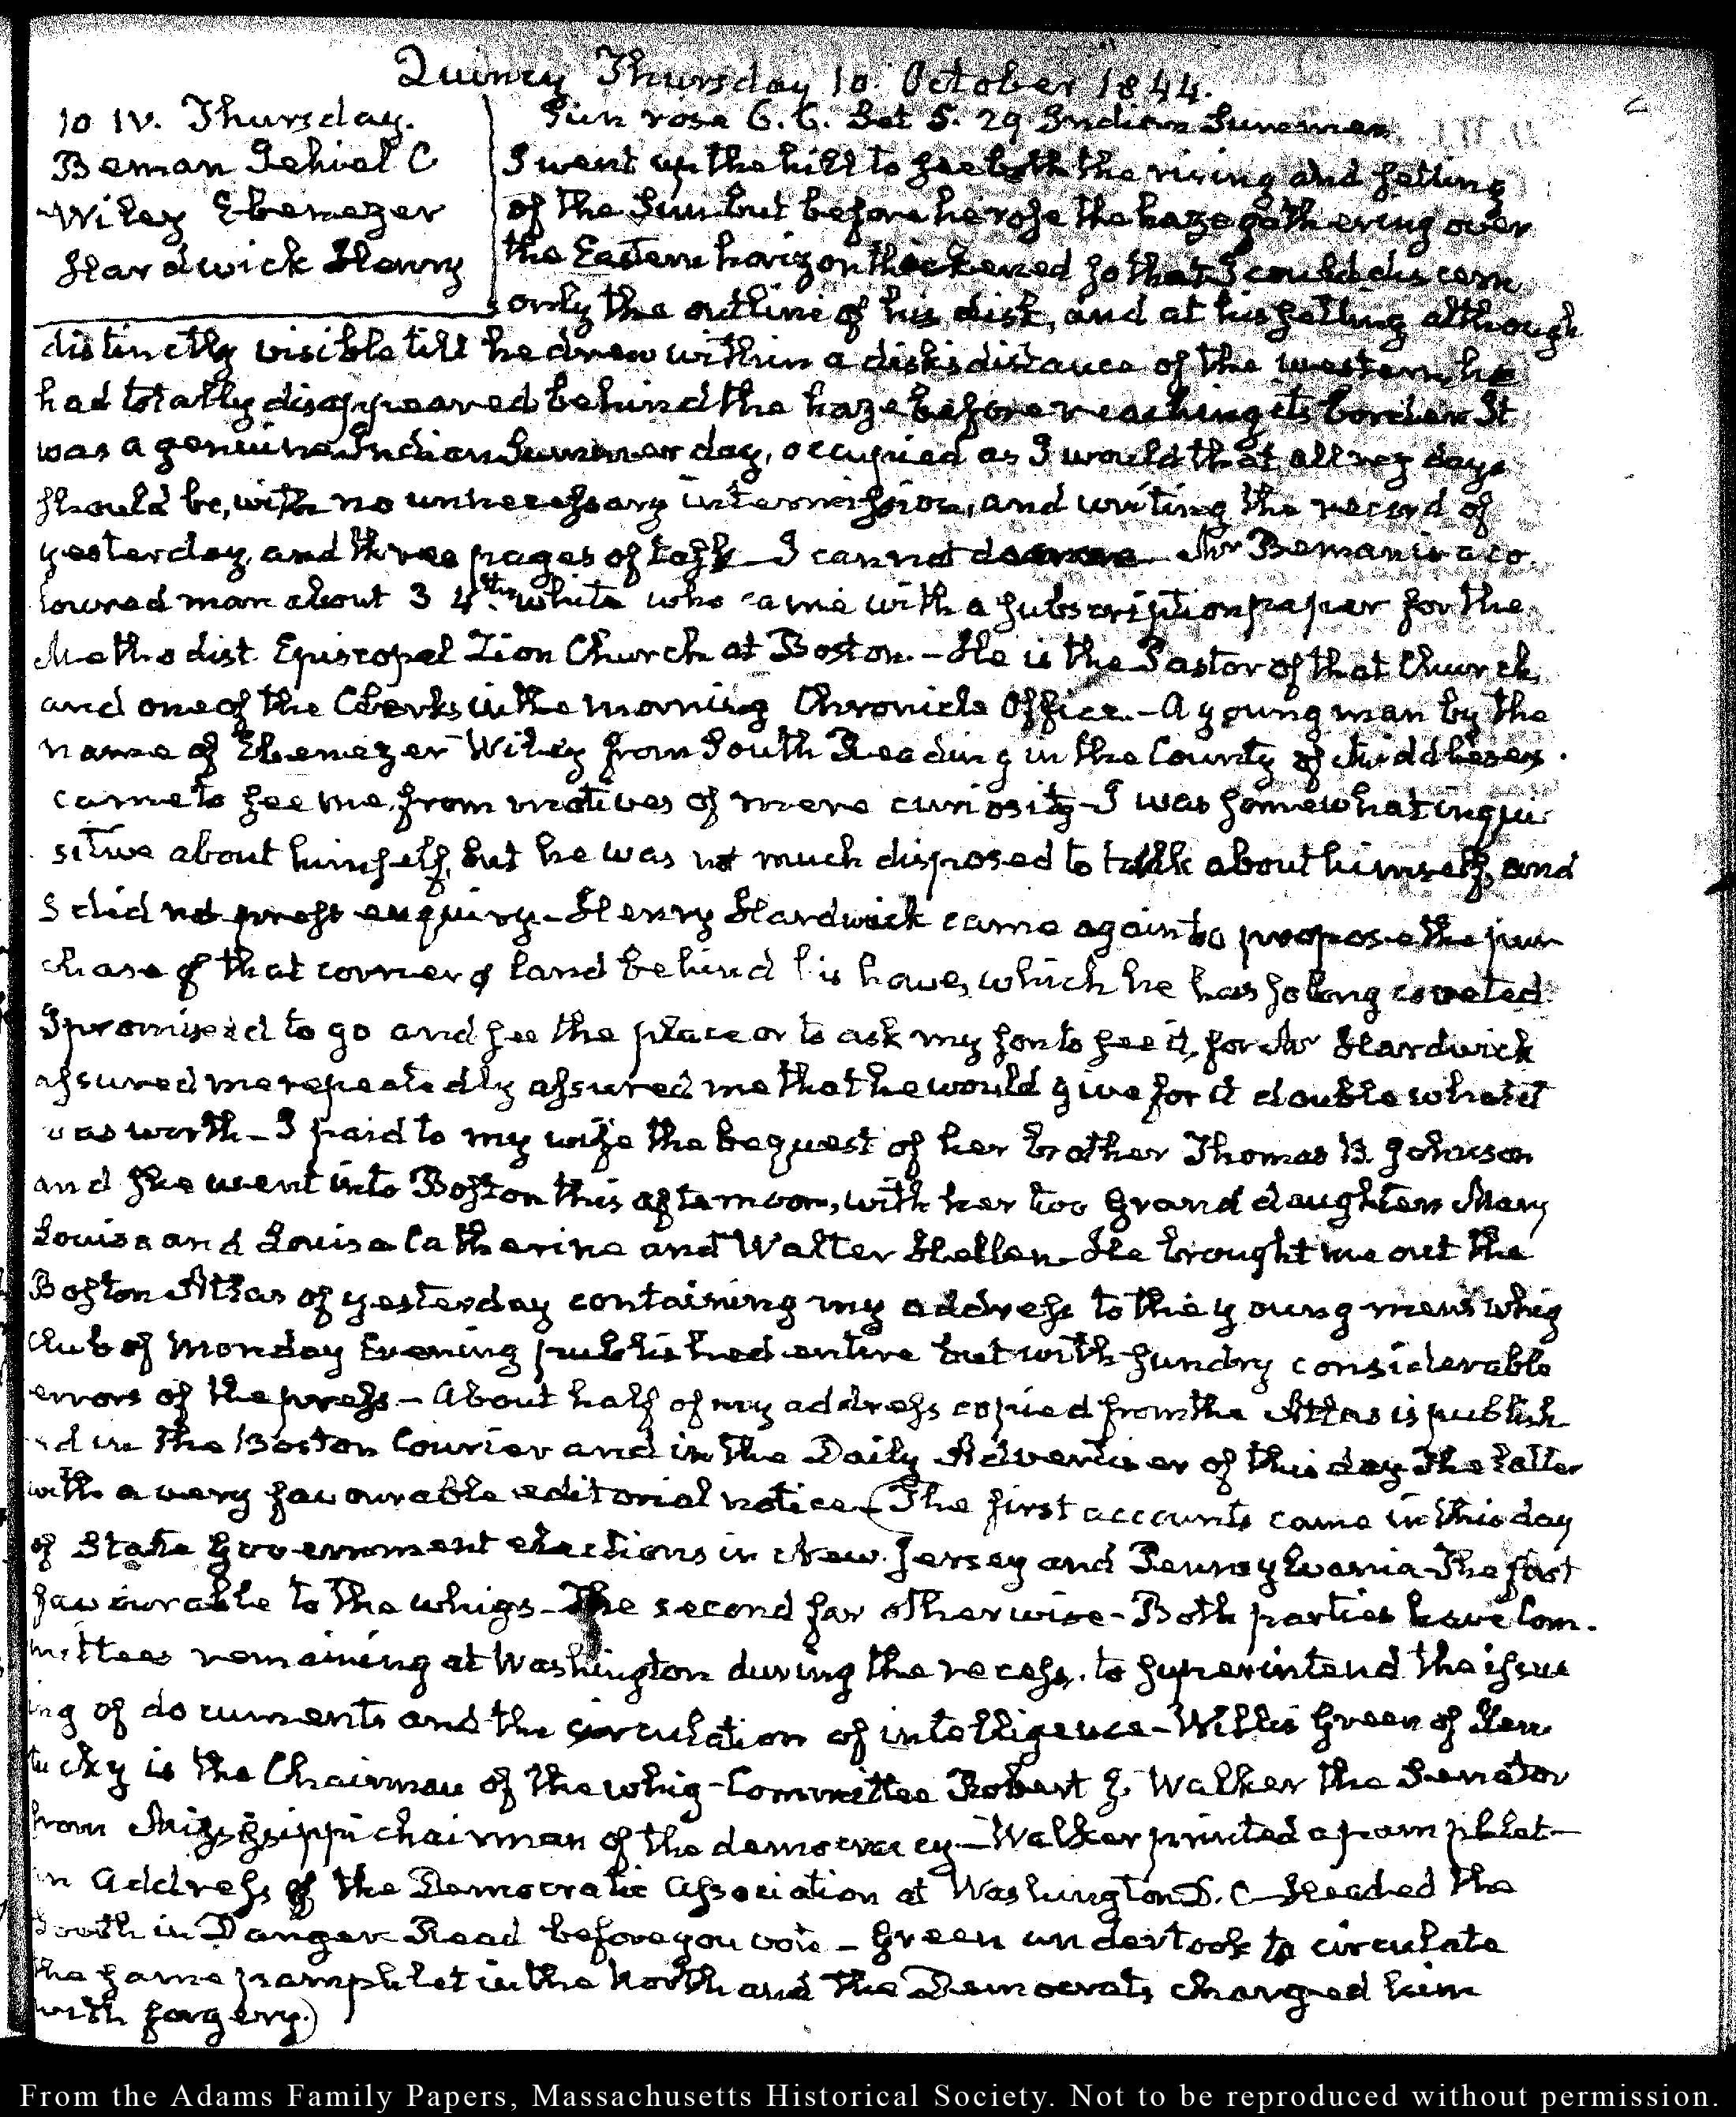 Quincy Thursday 10. October 1844.
10 IV. Thursday.
Beman Jehiel C
Wiley Ebenezer
Hardwick Henry
Sun rose 6. 6. Set 5. 29 Indian Summer
I went up the hill to see both the rising and setting
of the Sun but before he rose the haze gathering over
the Eastern horizon thickened so that I could discern
only the outline of his disk, and at his setting although
distinctly visible till he drew within a disk's distance of the western, he
had totally disappeared behind the haze before reaching its border It
was a genuine Indian Summer day, occupied as I would that all my days
should be, with no unnecessary intermission, and writing the record of
yesterday, and three pages of task — I cannot do more — Mr Beman is a co
loured man about 3 4ths. white who came with a subscription paper for the
Methodist Episcopal Zion Church at Boston. — He is the Pastor of that Church,
and one of the Clerks in the morning Chronicle Office. — A young man by the
name of Ebenezer Wiley from South Reading in the County of Middlesex.
came to see me from motives of mere curiosity — I was somewhat inqui
sitive about himself, but he was not much disposed to talk about himself, and
I did not press enquiry — Henry Hardwick came again to propose the pur
chase of that corner of land behind his house, which he has so long coveted.
I promised to go and see the place or to ask my son to see it, for Mr Hardwick
assured me repeatedly assured me that he would give for it double what it
was worth — I paid to my wife the bequest of her brother Thomas B. Johnson
and she went into Boston this afternoon, with her two Grand daughters Mary
Louisa and Louisa Catherine and Walter Hellen — He brought me out the
Boston Atlas of yesterday containing my address to the young men's whig
Club of Monday Evening published entire but with sundry considerable
errors of the press — About half of my address copied from the Atlas is publish
ed in the Boston Courier and in the Daily Advertiser of this day The latter
with a very favourable editorial notice — (The first accounts came in this day
of State Government elections in New Jersey and Pennsylvania — The first
favourable to the whigs — The second far otherwise — Both parties have Com-
mittees remaining at Washington during the recess, to superintend the issu
ing of documents and the circulation of intelligence — Willis Green of Ken
tucky is the Chairman of the whig-Committee Robert J. Walker the Senator
from Mississippi chairman of the democracy — Walker printed a pamphlet —
an Address of the Democratic Association at Washington D. C — Headed the
South in Danger Read before you vote — Green undertook to circulate
the same pamphlet in the North and the Democrats charged him
with forgery.)
From the Adams Family Papers, Massachusetts Historical Society. Not to be reproduced without permission.